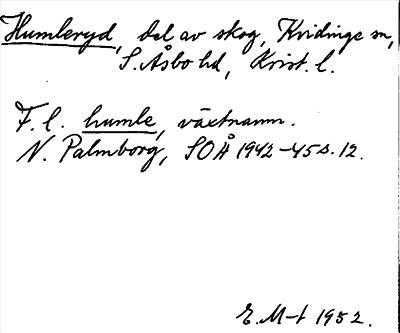 Humleryd, del av skog, Kvidinge sn,
S. Åsbo hd, Krist. l.
F. l. humle, växtnamn.
N. Palmborg, SOÅ 1942-45 s. 12.
E. M-t 1952.